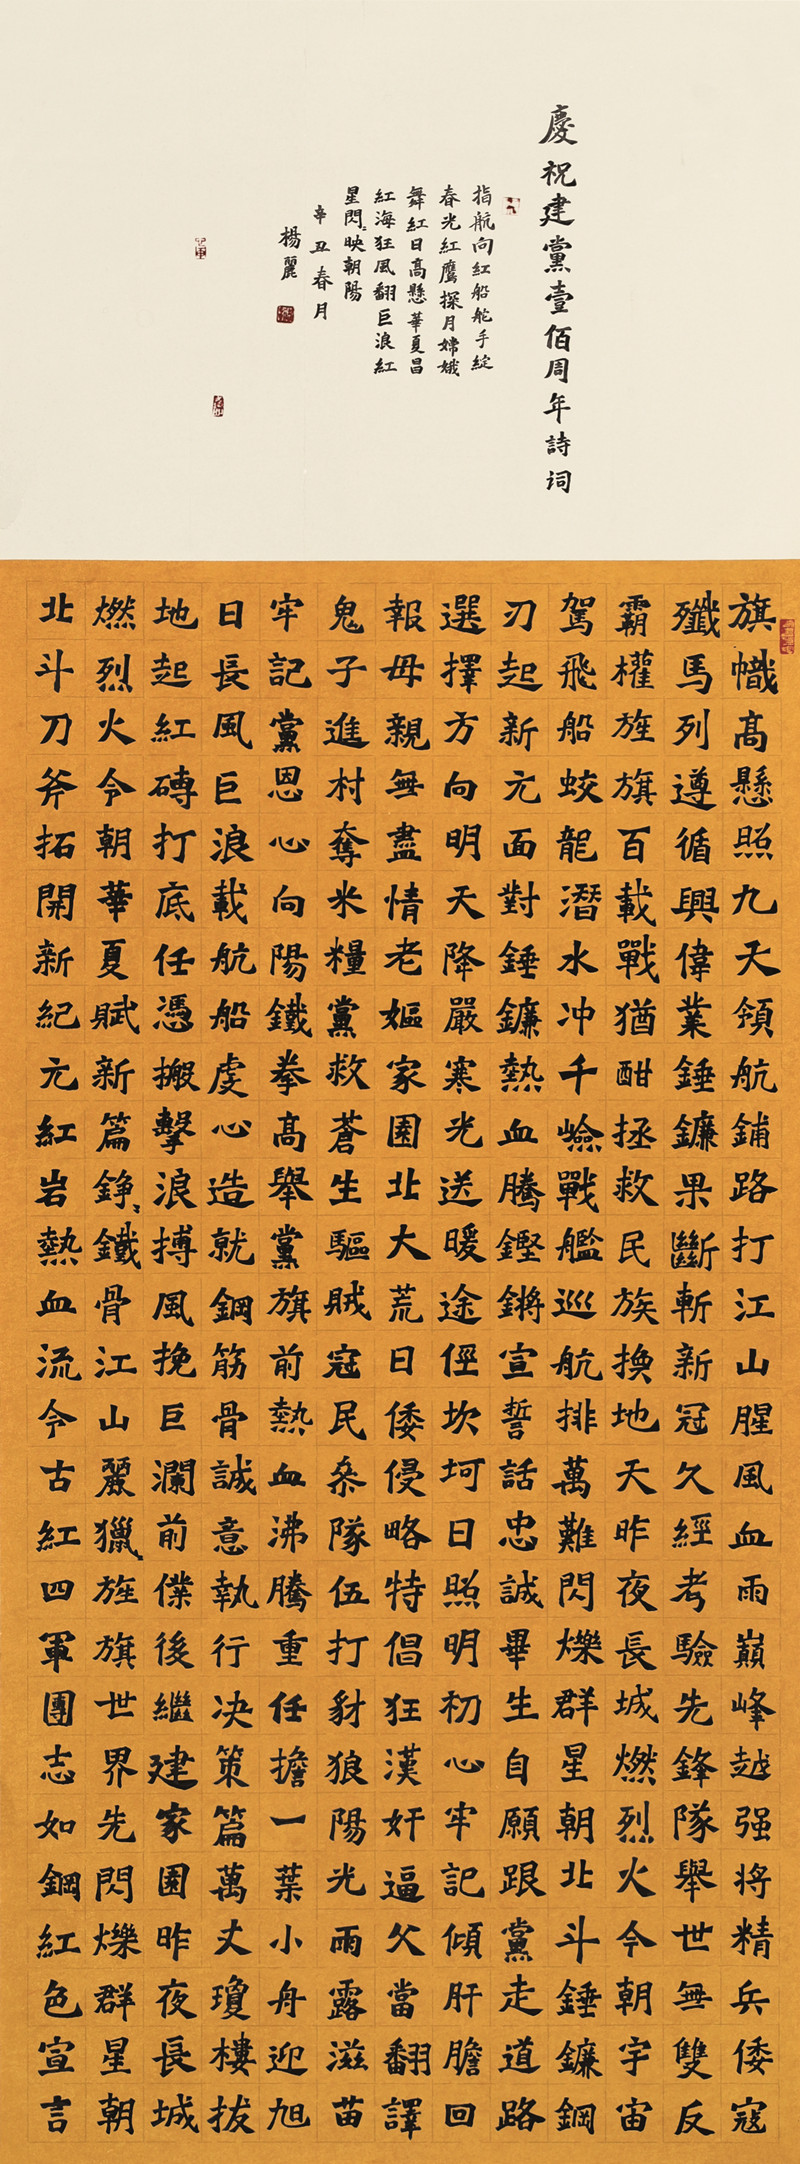 慶祝建黨壹佰周年詩詞
指航向紅船舵手綻
春光紅鷹探月嫦娥
舞紅日高懸華夏昌
紅海狂風翻巨浪紅
星閃〻映朝陽
辛丑春月
楊麗
旗幟高懸照九天領航鋪路打江山腥風血雨巔峰越强將精兵倭寇
殲馬列遵循興偉業錘鐮果斷斬新冠久經考驗先鋒隊舉世無雙反
霸權旌旗百載戰猶酣拯救民族換地天昨夜長城燃烈火今朝宇宙
駕飛船蛟龍潛水冲千嶮戰艦巡航排萬難閃爍群星朝北斗錘鐮鋼
刃起新元面對錘鐮熱血騰鏗鏘宣誓話忠誠畢生自願跟黨走道路
選擇方向明天降嚴寒光送暖途徑坎坷日照明初心牢記傾肝膽回
報母親無盡情老嫗家園北大荒日倭侵略特倡狂漢奸逼父當翻譯
鬼子進村奪米糧黨救蒼生驅賊寇民叅隊伍打豺狼陽光雨露滋苗
牢記黨恩心向陽鐵拳高舉黨旗前熱血沸騰重任擔一葉小舟迎旭
日長風巨浪載航船虔心造就鋼筋骨誠意執行决策篇萬丈瓊樓拔
地起紅磚打底任憑搬擊浪搏風挽巨瀾前僕後繼建家園昨夜長城
燃烈火今朝華夏賦新篇錚〻鐵骨江山麗獵〻旌旗世界先閃爍群星朝
北斗刀斧拓開新紀元紅岩熱血流今古紅四軍團志如鋼紅色宣言